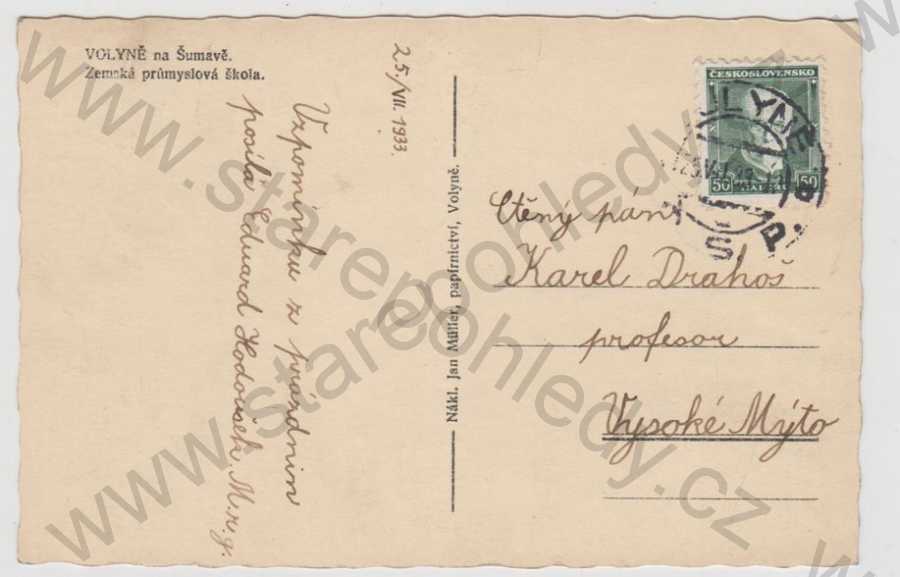 VOLYNĚ na Šumavě.
Zemská průmyslová škola.
25./VII. 1933.
Vzpomínku z prázdnin
posílá Eduard Hodoušek M.r.g.
Nákl. Jan Müller, papírnictví, Volyně.
ČESKOSLOVENSKO
50 50
VOLYNĚ
Ctěný pán
Karel Drahoš
profesor
Vysoké Mýto
www.starepohledy.cz